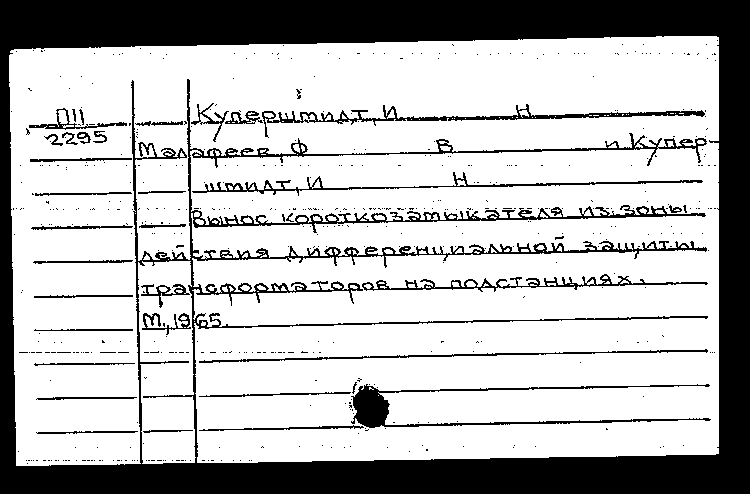 ПII Куперштидт, И Н
2295
Малафеев, Ф В и Купер-
штидт, И Н
Вынос короткозамыкателя из зоны
действия дифференциальной защиты
трансформаторов на подстанциях.
М., 1965.